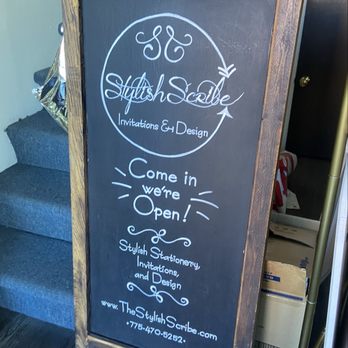 SS
Stylish Scribe
Invitations & Design
Come in
we're
Open!
Stylish Stationery,
Invitations,
and Design
www.TheStylishScribe.com
•775-470-5252•